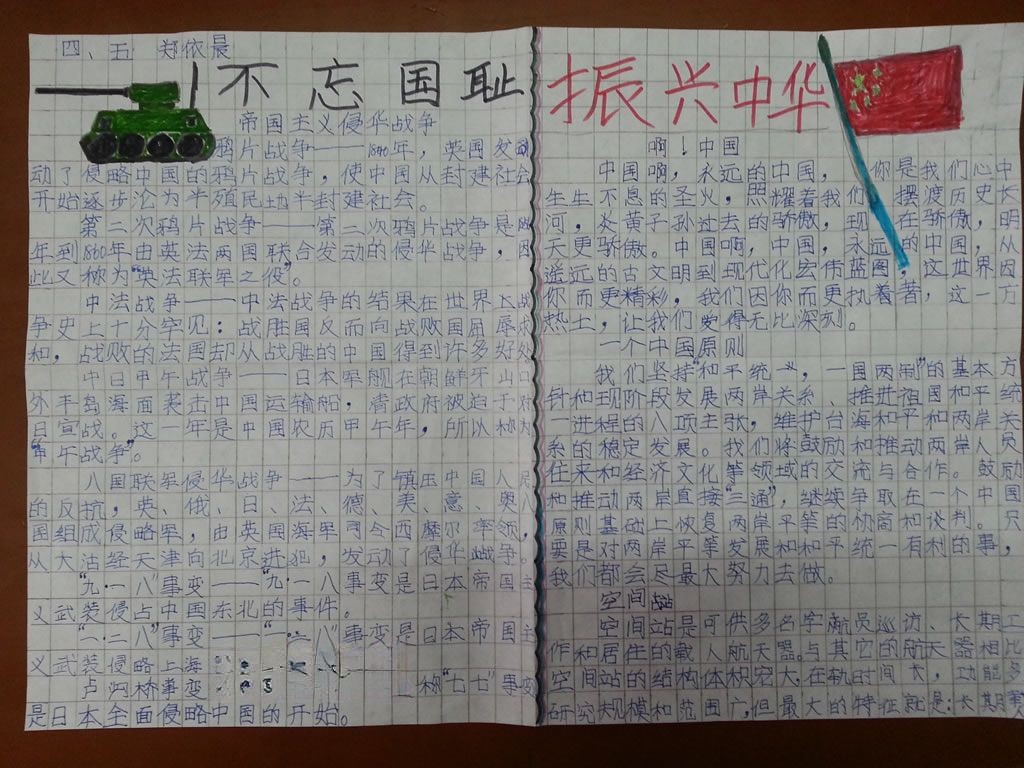 四、五 郑依晨
不忘国耻
帝国主义侵华战争
鸦片战争——1840年，英国发动
动了侵略中国的鸦片战争，使中国从封建社会
开始逐步沦为半殖民地半封建社会。
第二次鸦片战争——第二次鸦片战争是
年到1860年由英法两国联合发动的侵华战争，因
此又称为"英法联军之役"。
中法战争——中法战争的结果在世界
争史上十分罕见：战胜国反而向战败国屈辱求
和，战败的法国却从战胜的中国得到许多好处
中日甲午战争——日本军舰在朝鲜牙山口
外丰岛海面袭击中国运输船，清政府被迫于对
日宣战。这一年是中国农历甲午年，所以称为
"甲午战争"。
八国联军侵华战争——为了镇压中国人民
的反抗，英、俄、日、法、德、美、意、奥八
国组成侵略军，由英国海军司令西摩尔率领，
从大沽经天津向北京进犯，发动了侵华战争。
"九·一八"事变——"九·一八事变是日本帝国主
义武装侵占中国东北的事件。
"一·二八"事变——"一·二八"事变是日本帝国主
义武装侵略上海
卢沟桥事变 称"七七"事变
是日本全面侵略中国的开始。
振兴中华
啊！中国
中国啊，永远的中国，你是我们心中
生生不息的圣火，照耀着我们摆渡历史长
河，炎黄子孙过去的骄傲，现在骄傲，明
天更骄傲。中国啊，中国，永远的中国，从
遥远的古文明到现代化宏伟蓝图，这世界因
你而更精彩，我们因你而更执着著，这一方
热土，让我们爱得无比深刻。
一个中国原则
我们坚持"和平统一，一国两制"的基本方
针和现阶段发展两岸关系、推进祖国和平统
一进程的八项主张，维护台海和平和两岸关
系的稳定发展。我们将鼓励和推动两岸人员
往来和经济文化等领域的交流与合作。鼓励
和推动两岸直接"三通"，继续争取在一个中国
原则基础上恢复两岸平等的协商和谈判。只
要是对两岸平等发展和和平统一有利的事，
我们都会尽最大努力去做。
空间站
空间站是可供多名宇航员巡访、长期工
作和居住的载人航天器。与其它的航天器相比
空间站的结构体积宠大，在轨时间长，功能多
研究规模和范围广，但最大的特征就是：长期